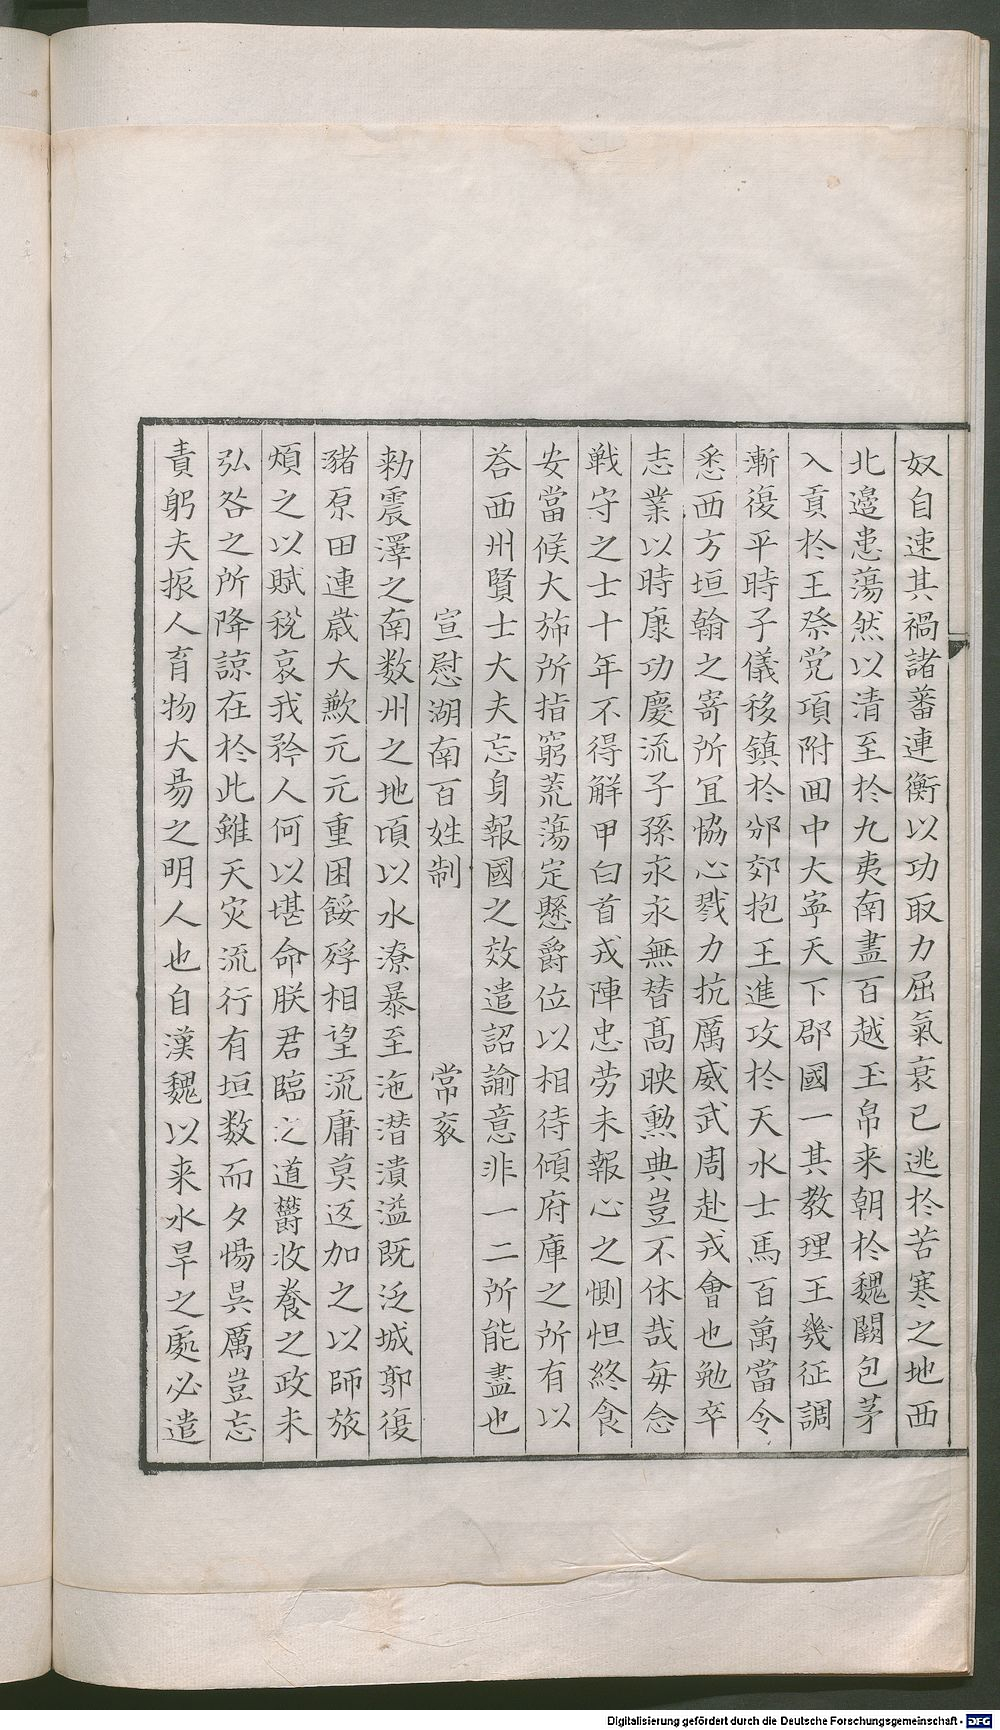 奴自速其禍諸蕃連衡以功取力屈氣衰已逃於苦寒之地西
北邊患蕩然以清至於九夷南盡百越玉帛来朝於魏闕包茅
入貢於王祭党項附囬中大寧天下郡國一其教理王幾征調
漸復平時子儀移鎮於邠郊抱玉進攻於天水士馬百萬當令
悉西方垣翰之寄所冝恊心戮力抗厲威武周赴戎會也勉卒
志業以時康功慶流子孫永永無替髙映勲典豈不休哉毎念
戦守之士十年不得解甲白首戎陣忠劳未報心之惻怛終食
安當候大斾所指窮荒蕩定懸爵位以相待傾府庫之所有以
荅西州賢士大夫忘身報國之效遣詔諭意非一二所能盡也
宣慰湖南百姓制 常衮
勑震澤之南数州之地頃以水潦暴至沲潜潰溢既泛城郭復
豬原田連歳大歉元元重困餒殍相望流庸莫返加之以師旅
煩之以賦税哀我矜人何以堪命朕君臨之道欝收養之政未
弘咎之所降諒在於此雖天灾流行有垣数而夕惕具厲豈忘
責躬夫振人育物大昜之明人也自漢魏以来水旱之處必遣
Digitalisierung gefördert durch die Deutsche Forschungsgemeinschaft - DFG